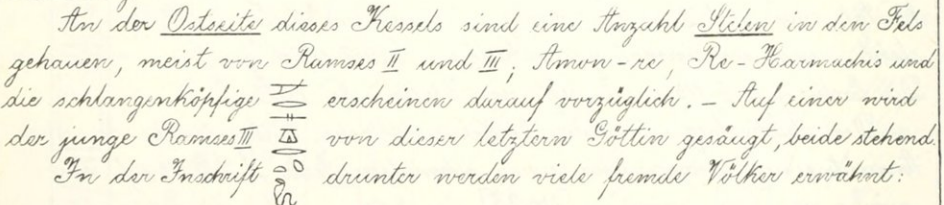 An der Ostseite dieses Kessels sind eine Anzahl Stelen in den Fels
gehauen, meist von Ramses II und III; Amon-re, Re-Harmachis und
die schlangenköpfige erscheinen darauf vorzüglich. – Auf einer wird
der junge Ramses III von dieser letztern Göttin gesäugt, beide stehend.
In der Inschrift drunter werden viele fremde Völker erwähnt: